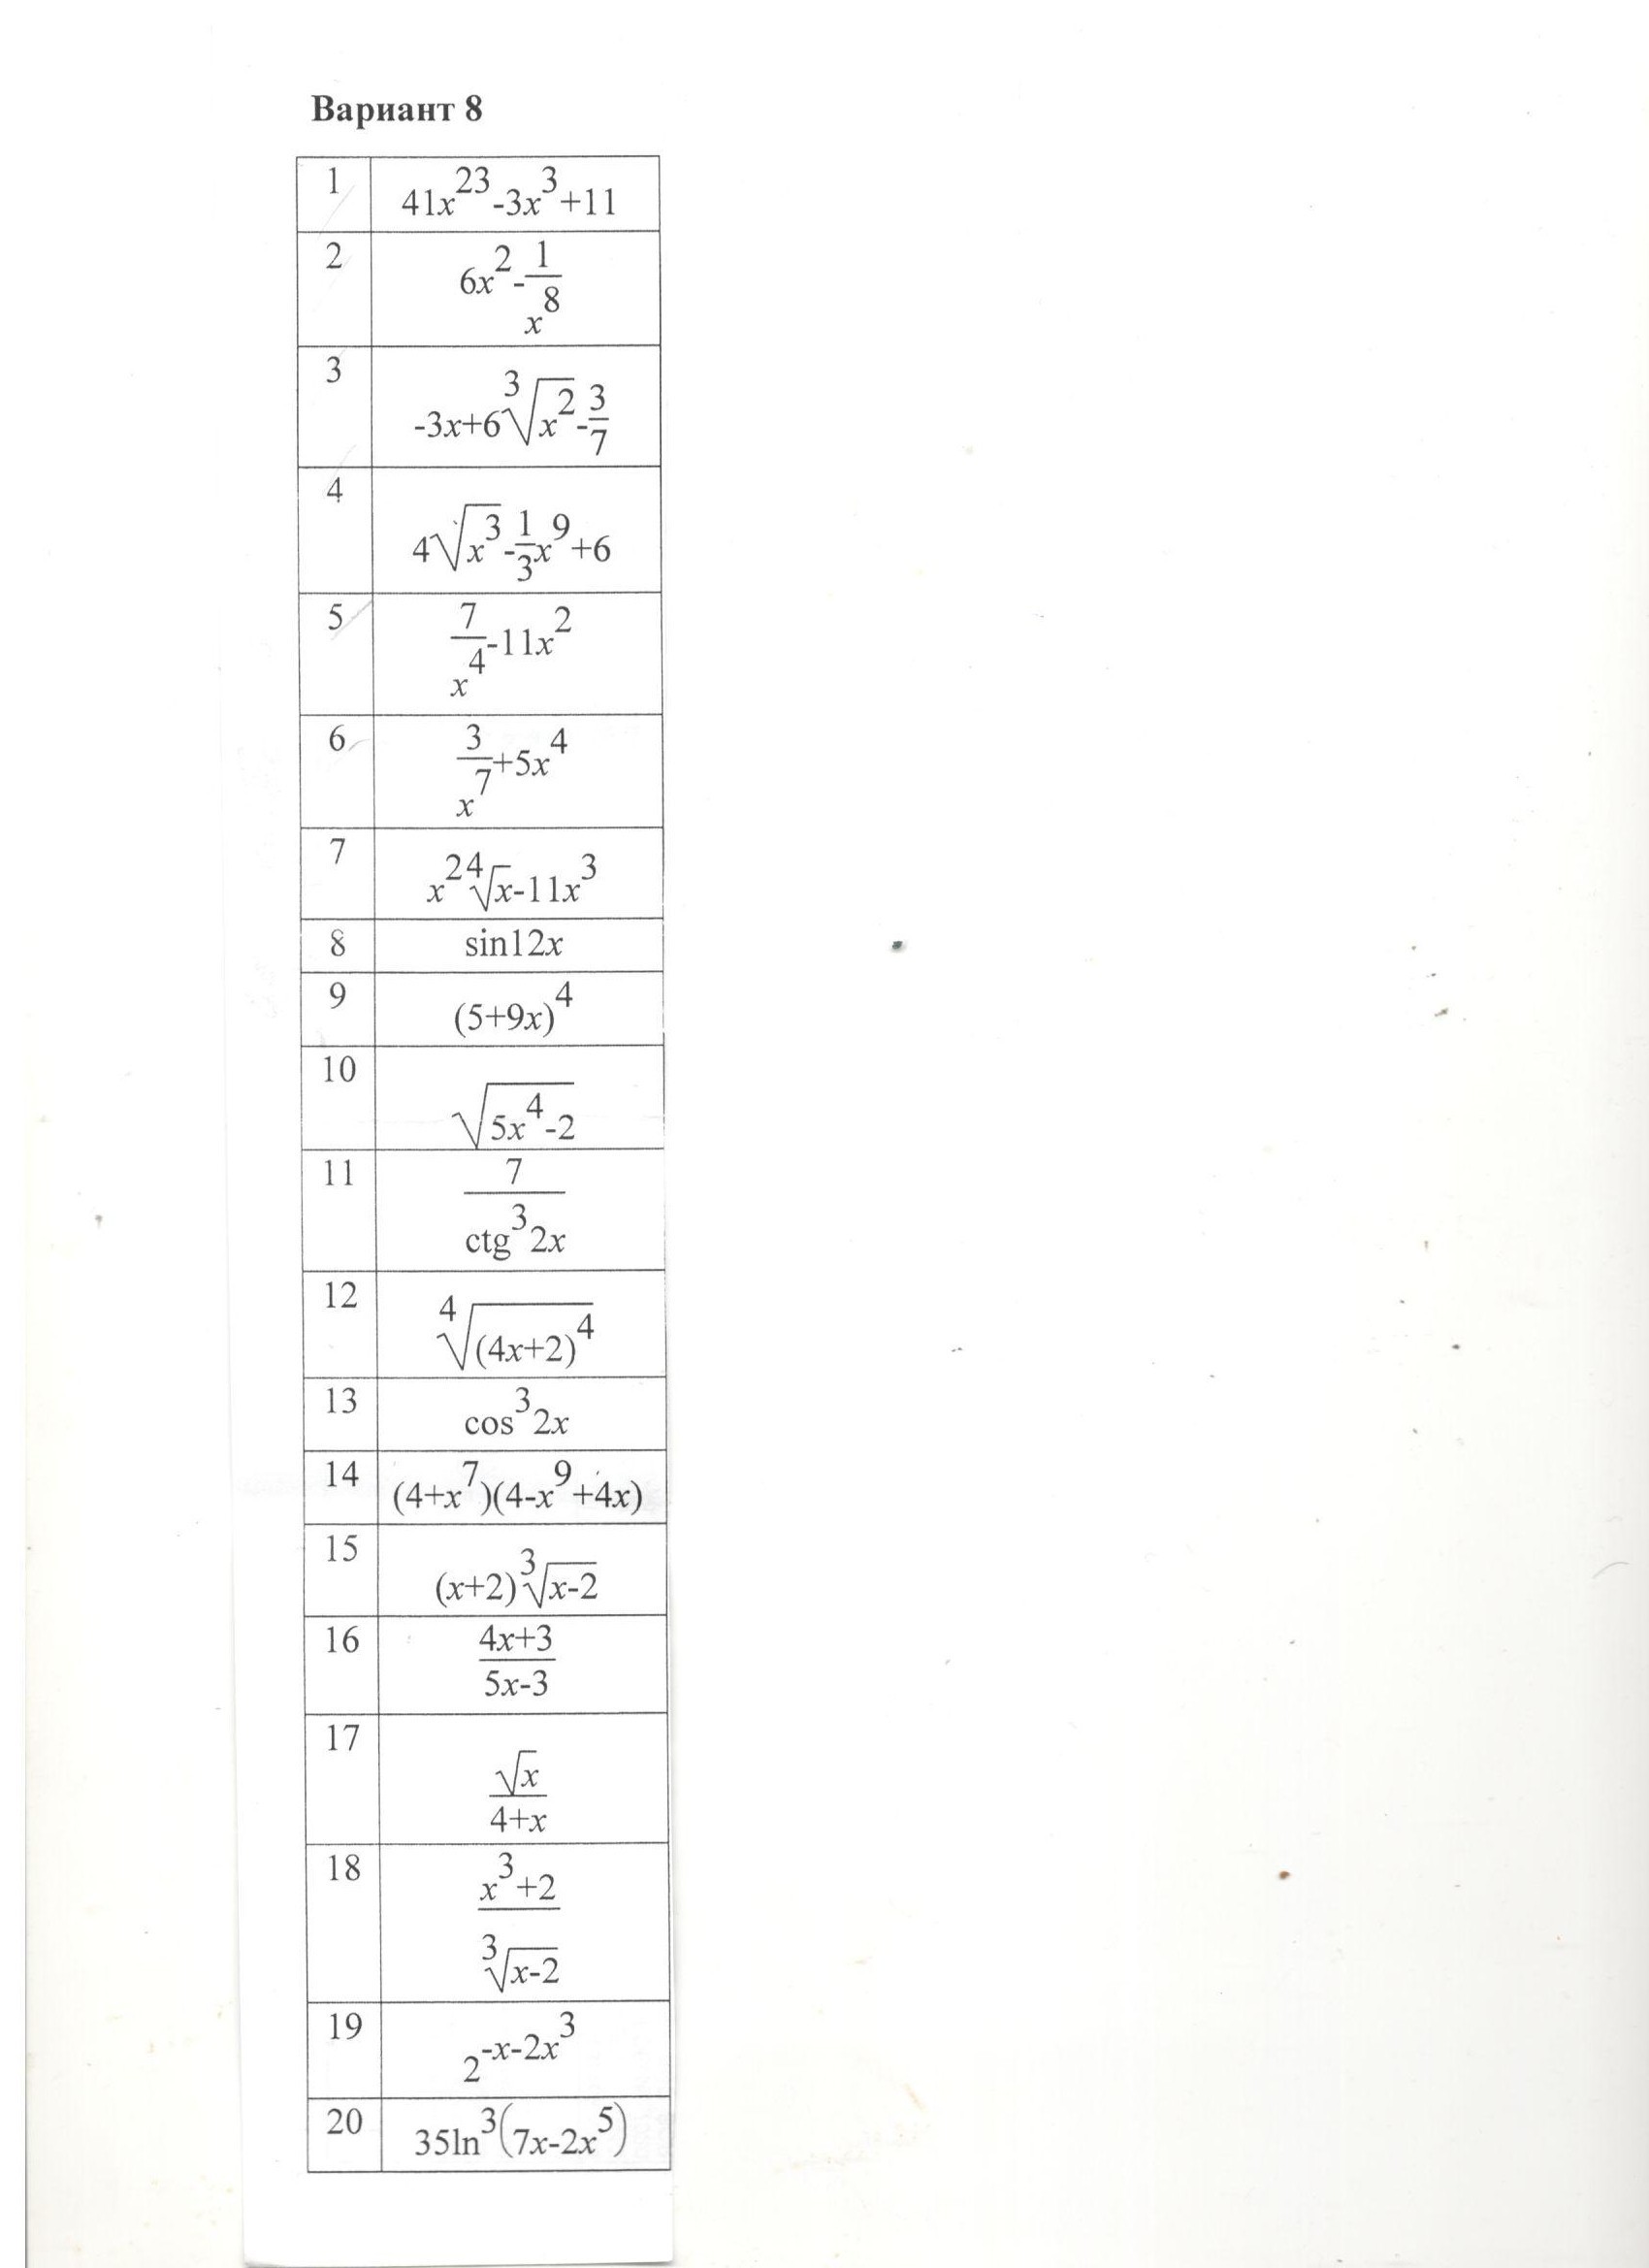 Вариант 8
1 41x^23-3x^3+11
2 6x^2-1/x^8
3 -3x+6∛(x^2)-3/7
4 4√(x^3)-1/3x^9+6
5 7/x^4-11x^2
6 3/x^7+5x^4
7 x^2∜x-11x^3
8 sin12x
9 (5+9x)^4
10 √(5x^4-2)
11 7/ctg^3 2x
12 ∜((4x+2)^4)
13 cos^3 2x
14 (4+x^7)(4-x^9+4x)
15 (x+2)∛(x-2)
16 (4x+3)/(5x-3)
17 √x/(4+x)
18 (x^3+2)/∛(x-2)
19 2^(-x-2x^3)
20 35ln^3(7x-2x^5)